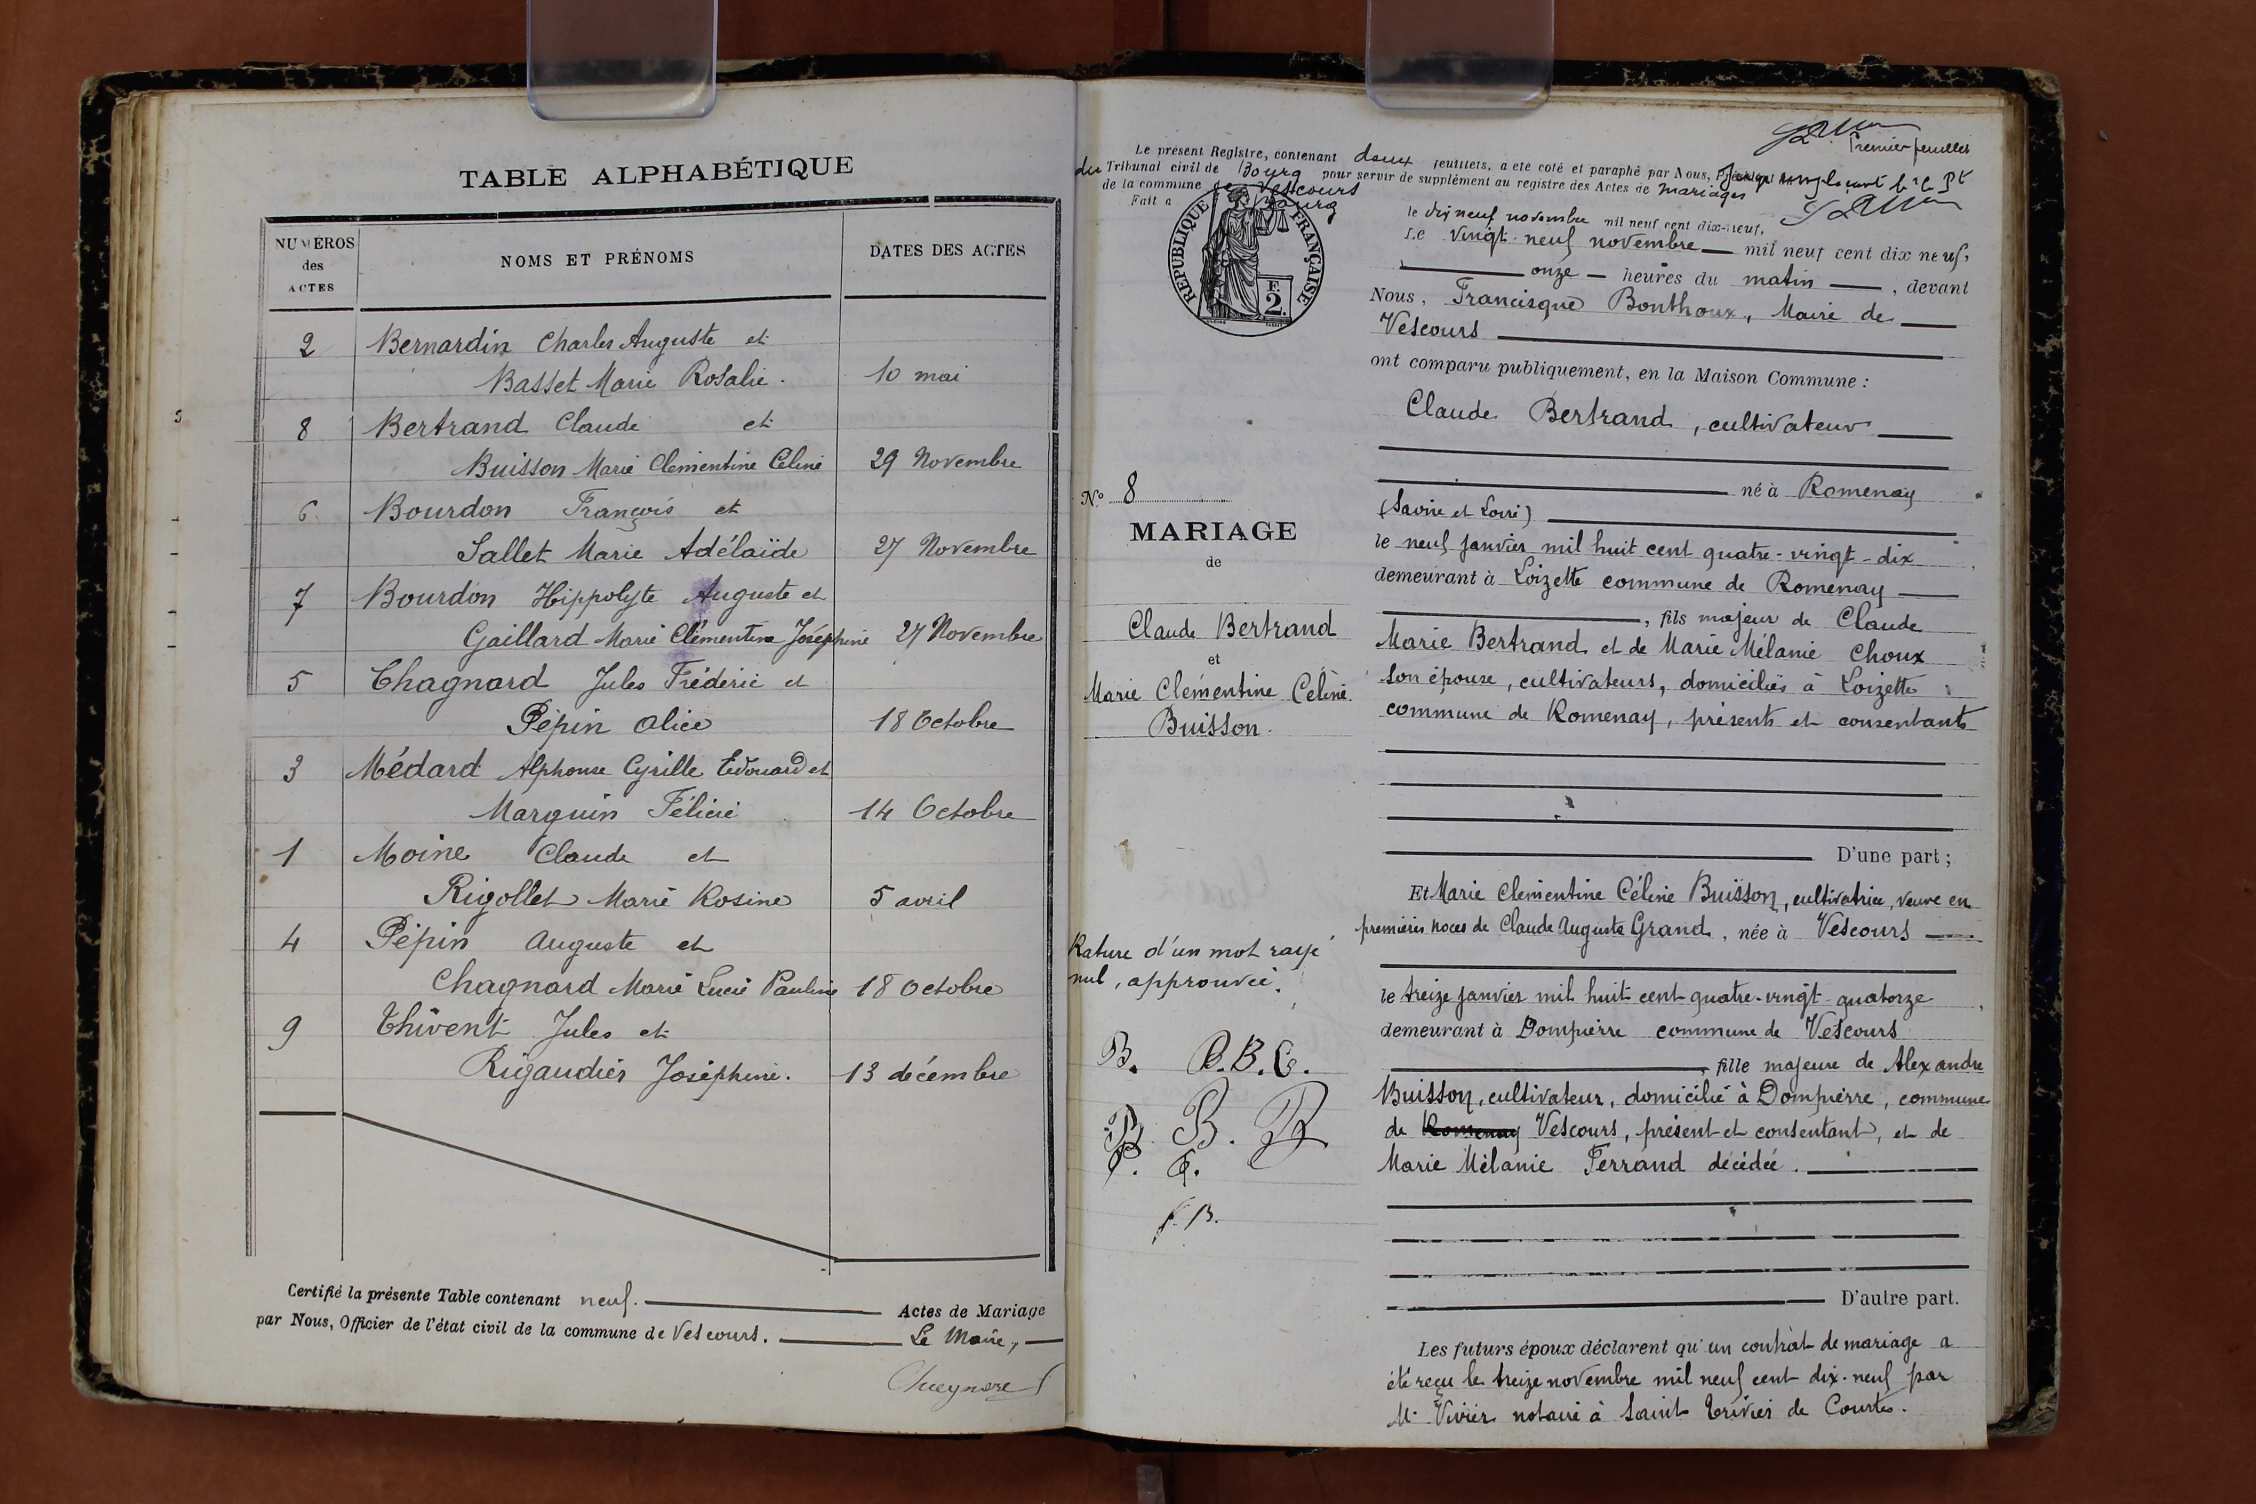 TABLE ALPHABÉTIQUE
NUMÉROS des ACTES
NOMS ET PRÉNOMS
DATES DES ACTES
2 Bernardin Charles Auguste et
Basset Marie Rosalie. 10 mai
8 Bertrand Claude et
Buisson Marie Clementine Céline 29 Novembre
6 Bourdon François et
Sallet Marie Adélaïde 27 Novembre
7 Bourdon Hippolyte Auguste et
Gaillard Marie Clémentine Joséphine 27 Novembre
5 Chagnard Jules Fréderic et
Pépin Alice 18 Octobre
3 Médard Alphonse Cyrille Edouard et
Marquin Félicie 14 Octobre
1 Moine Claude et
Rigollet Marie Rosine 5 avril
4 Pépin Auguste et
Chagnard Marie Lucie Pauline 18 Octobre
9 Thivent Jules et
Rigaudier Joséphine. 13 décembre
Certifié la présente Table contenant neuf. Actes de Mariage
par Nous, Officier de l'état civil de la commune de Vescours.
Le Maire,
Premier feuillet
Le présent Registre, contenant deux feuillets, a été coté et paraphé par Nous, Juge remplaçant
du Tribunal civil de Bourg pour servir de supplément au registre des Actes de mariages
de la commune de Vescours
Fait a Bourg
le dix neuf novembre mil neuf cent dix-neuf.
RÉPUBLIQUE FRANÇAISE
F.
2.
Le vingt-neuf novembre mil neuf cent dix neuf,
onze heures du matin, devant
Nous, Francisque Bonthoux, Maire de
Vescours
ont comparu publiquement, en la Maison Commune :
Claude Bertrand, cultivateur
né à Romenay
(Saône et Loire)
le neuf janvier mil huit cent quatre-vingt-dix
demeurant à Loizette commune de Romenay
, fils majeur de Claude
Marie Bertrand et de Marie Mélanie Choux
son épouse, cultivateurs, domiciliés à Loizette
commune de Romenay, présents et consentants
D'une part ;
No 8
MARIAGE
de
Claude Bertrand
et
Marie Clémentine Céline
Buisson.
Et Marie Clementine Céline Buisson, cultivatrice, veuve en
premières noces de Claude Auguste Grand, née à Vescours
le treize janvier mil huit cent quatre-vingt-quatorze
demeurant à Dompierre commune de Vescours
, fille majeure de Alexandre
Buisson, cultivateur, domicilié à Dompierre, commune
de Romenay Vescours, présent et consentant, et de
Marie Mélanie Ferrand décédée.
D'autre part.
Rature d'un mot rayé
nul, approuvée.
B. C.B.G.
B. B
f.B.
Les futurs époux déclarent qu'un contrat de mariage a
été reçu le treize novembre mil neuf cent dix-neuf par
Me Vivier notaire à Saint Trivier de Courtes.